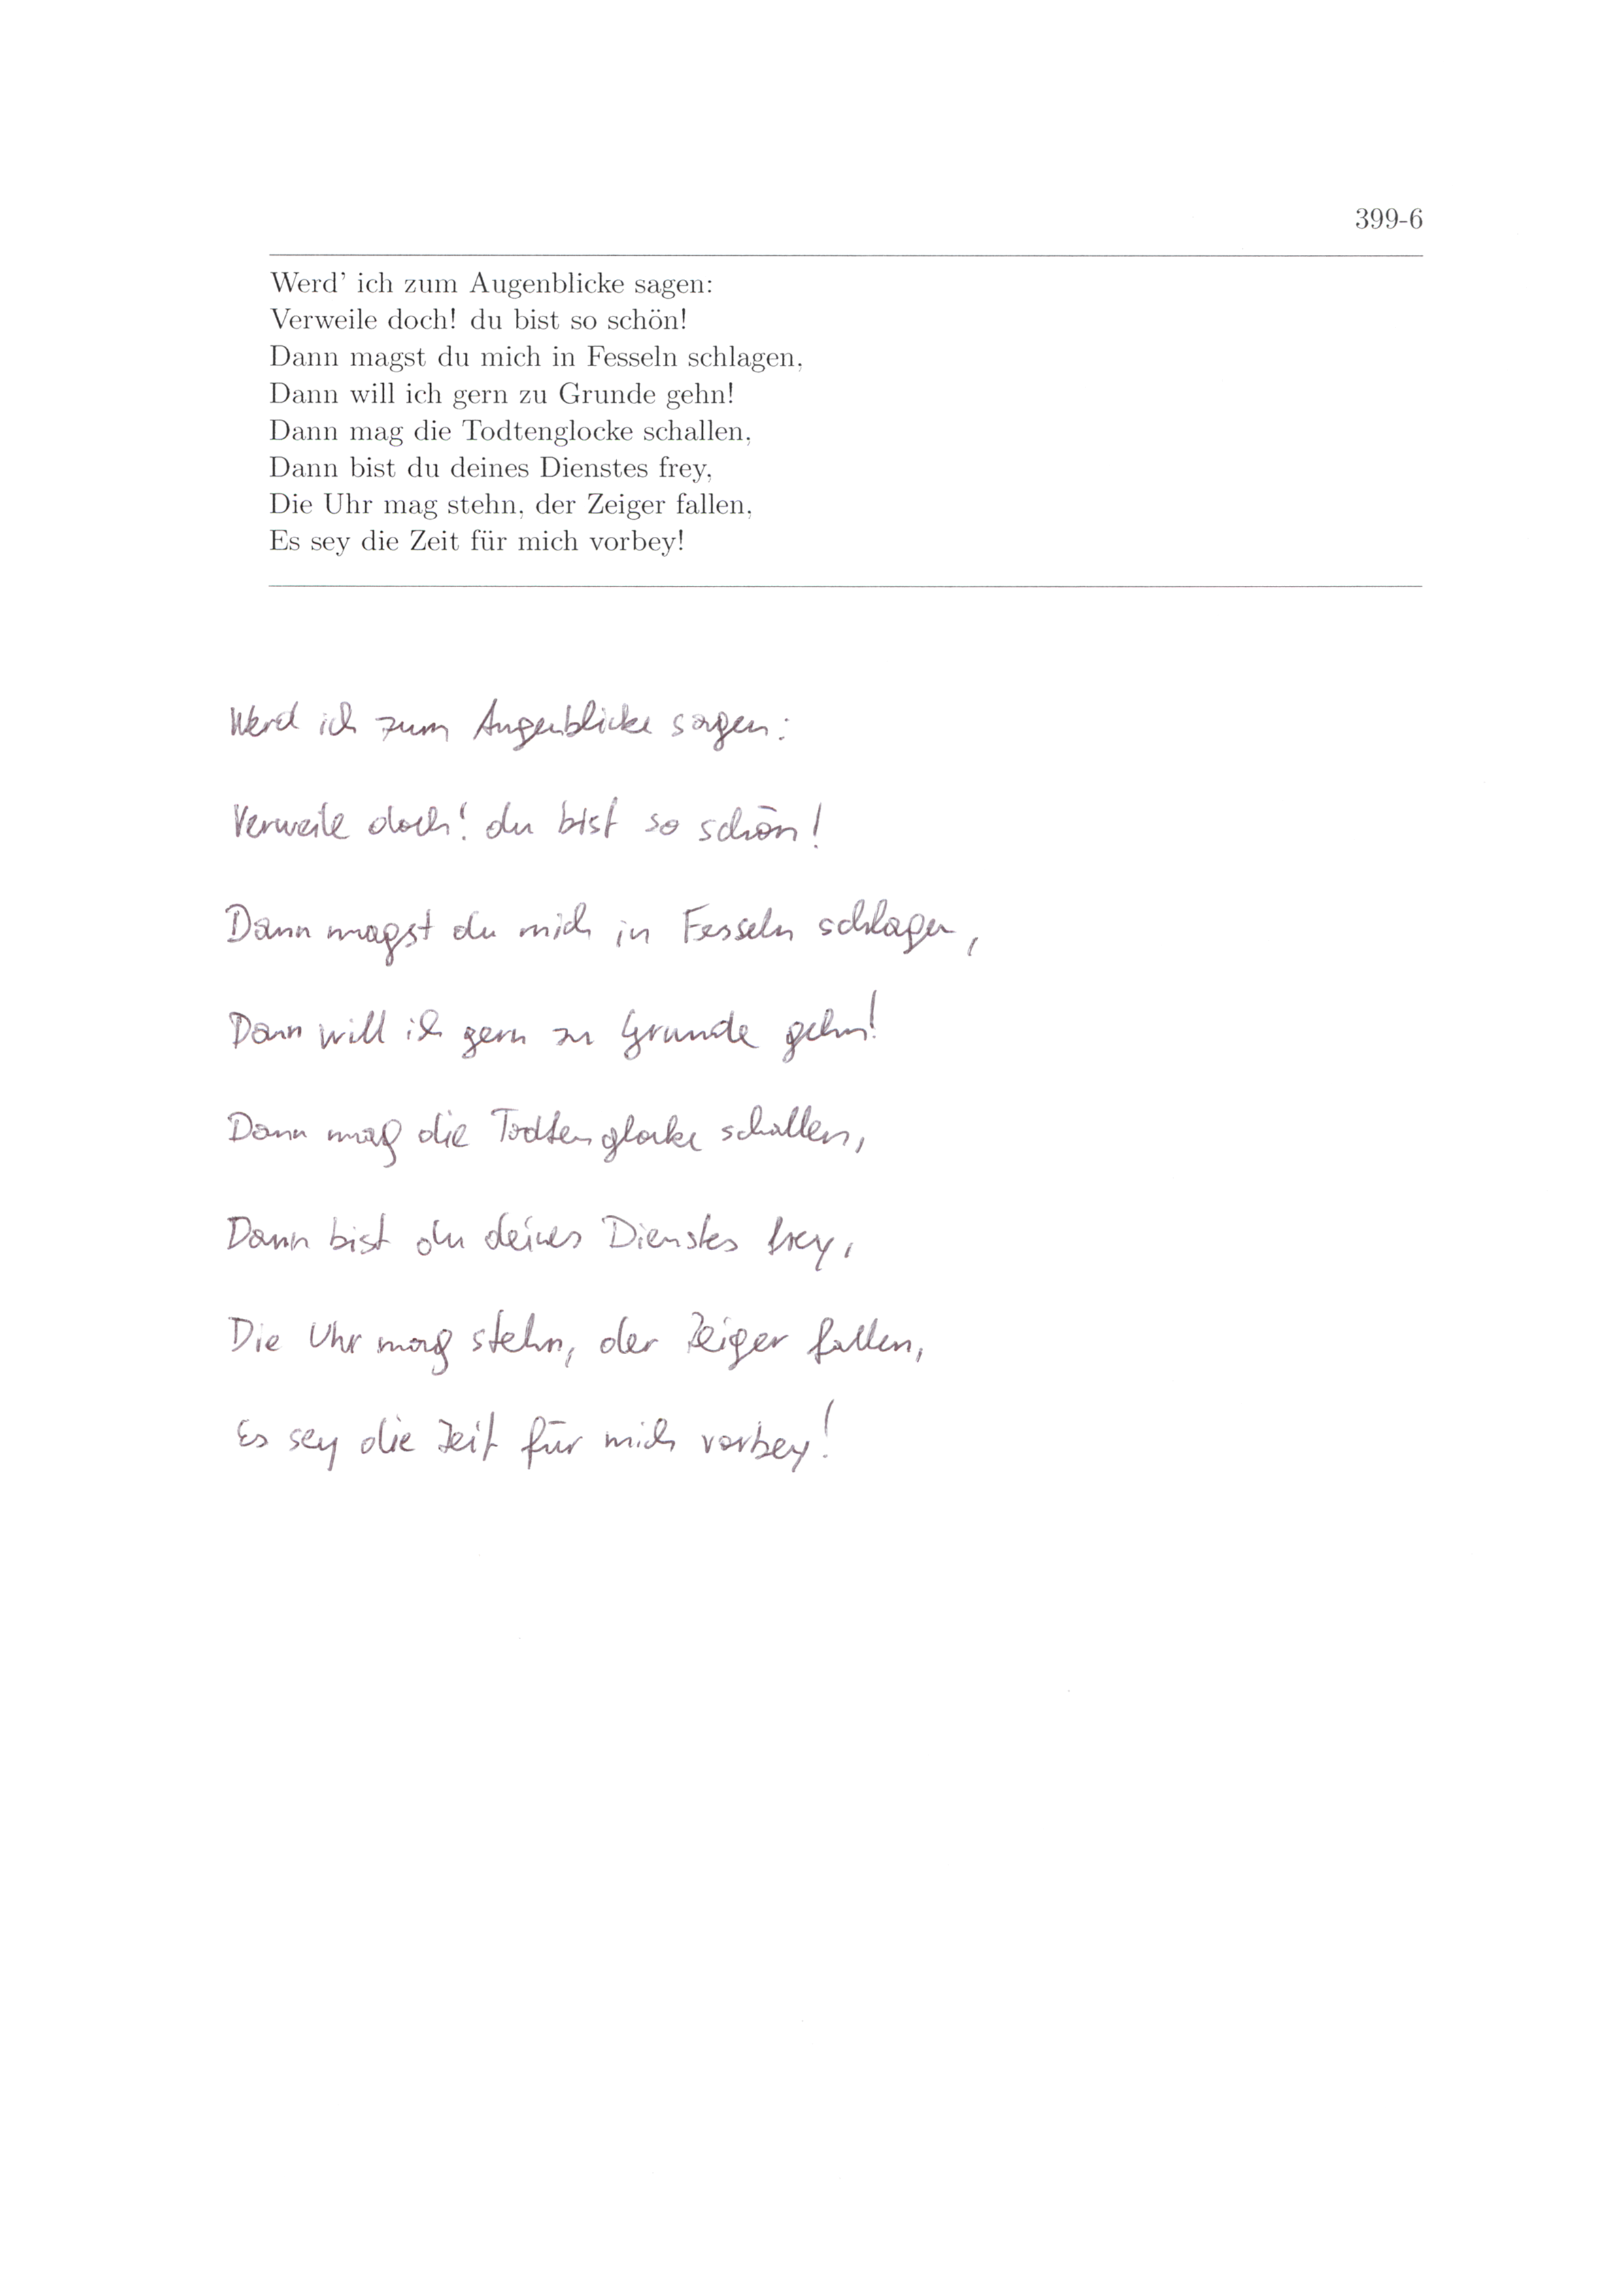 399-6
Werd' ich zum Augenblicke sagen:
Verweile doch! du bist so schön!
Dann magst du mich in Fesseln schlagen,
Dann will ich gern zu Grunde gehn!
Dann mag die Todtenglocke schallen,
Dann bist du deines Dienstes frey,
Die Uhr mag stehn, der Zeiger fallen,
Es sey die Zeit für mich vorbey!
Werd ich zum Augenblicke sagen:
Verweile doch! du bist so schön!
Dann magst du mich in Fesseln schlagen,
Dann will ich gern zu Grunde gehn!
Dann mag die Todtenglocke schallen,
Dann bist du deines Dienstes frey,
Die Uhr mag stehn, der Zeiger fallen,
Es sey die Zeit für mich vorbey!